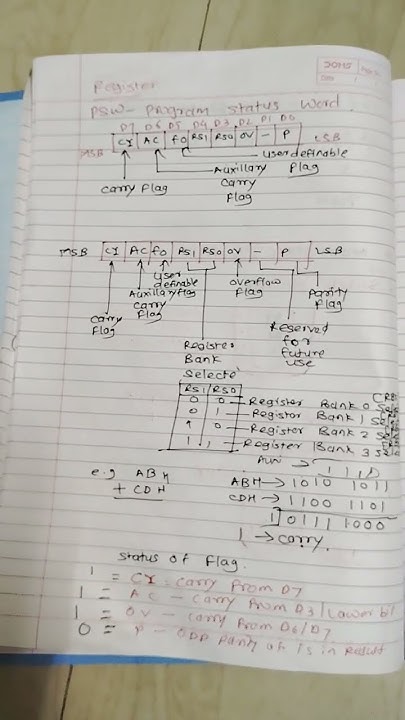 Register
PSW - Program status Word
D7 D6 D5 D4 D3 D2 D1 D0
MSB CY AC F0 RS1 RS0 OV - P LSB
User definable
Flag
Auxillary
Carry
Flag
Carry Flag
MSB CY AC F0 RS1 RS0 OV - P LSB
User
definable
Flag
Auxillary
Carry
Flag
Carry
Flag
Overflow
Flag
Parity
Flag
Register
Bank
Selecte
Reserved
for
future
use
RS1 RS0
0 0 Register Bank 0
0 1 Register Bank 1
1 0 Register Bank 2
1 1 Register Bank 3
e.g ABH
+ CDH
ABH → 1010 1011
CDH → 1100 1101
1 0111 1000
1 → carry.
Status of Flag.
1 = CY - Carry From D7
1 = AC - Carry From D3 / Lower
1 = OV - Carry From D6/D7
0 = P - ODD Parity of 1s in Result